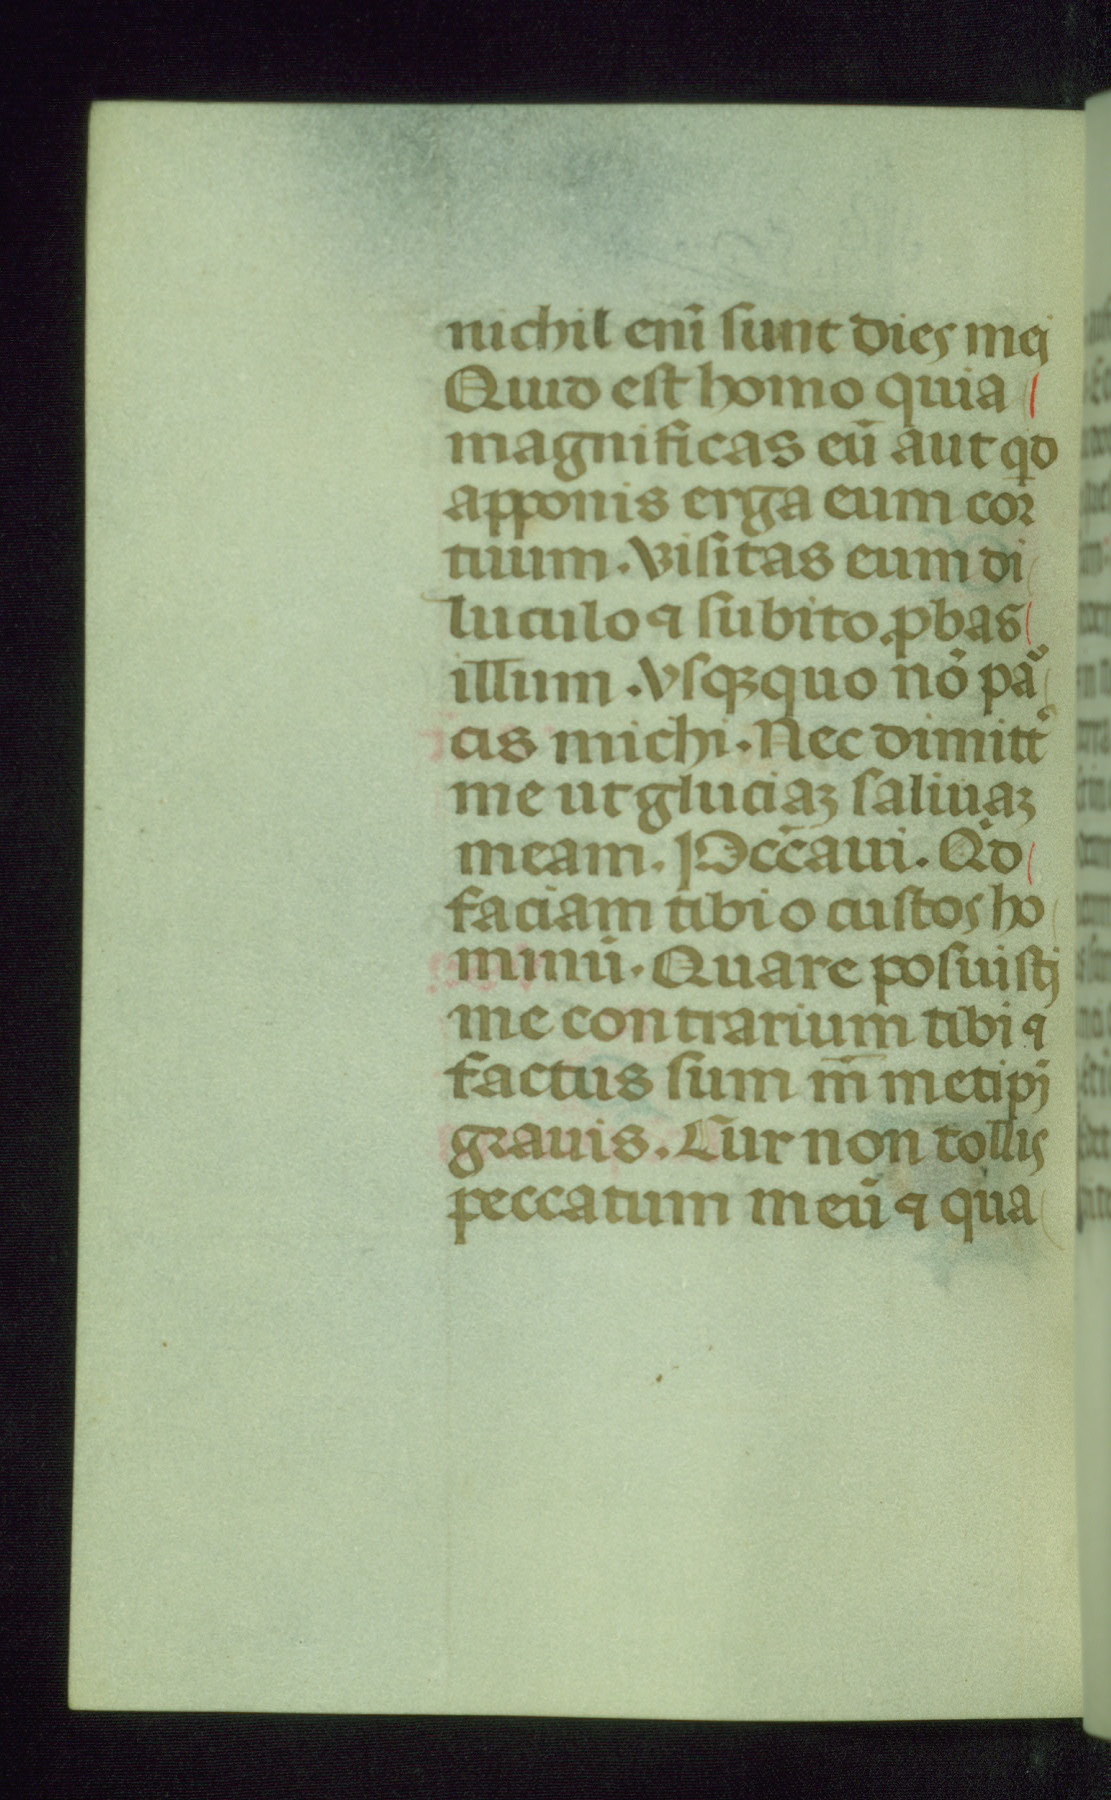 nichil enī sunt dies mei
Quid est homo quia
magnificas eū aut qd
apponis erga eum cor
tuum. Visitas eum di
luculo ⁊ subito ꝓbas
illum. Vsqꝫquo nō pa
cis michi. Nec dimittꝰ
me ut gluciaꝫ saliuaꝫ
meam. Peccaui. Qd
faciam tibi o custos ho
minū. Quare posuisti
me contrarium tibi ⁊
factus sum m̄ metipi
grauis. Cur non tollis
peccatum meū ⁊ qua